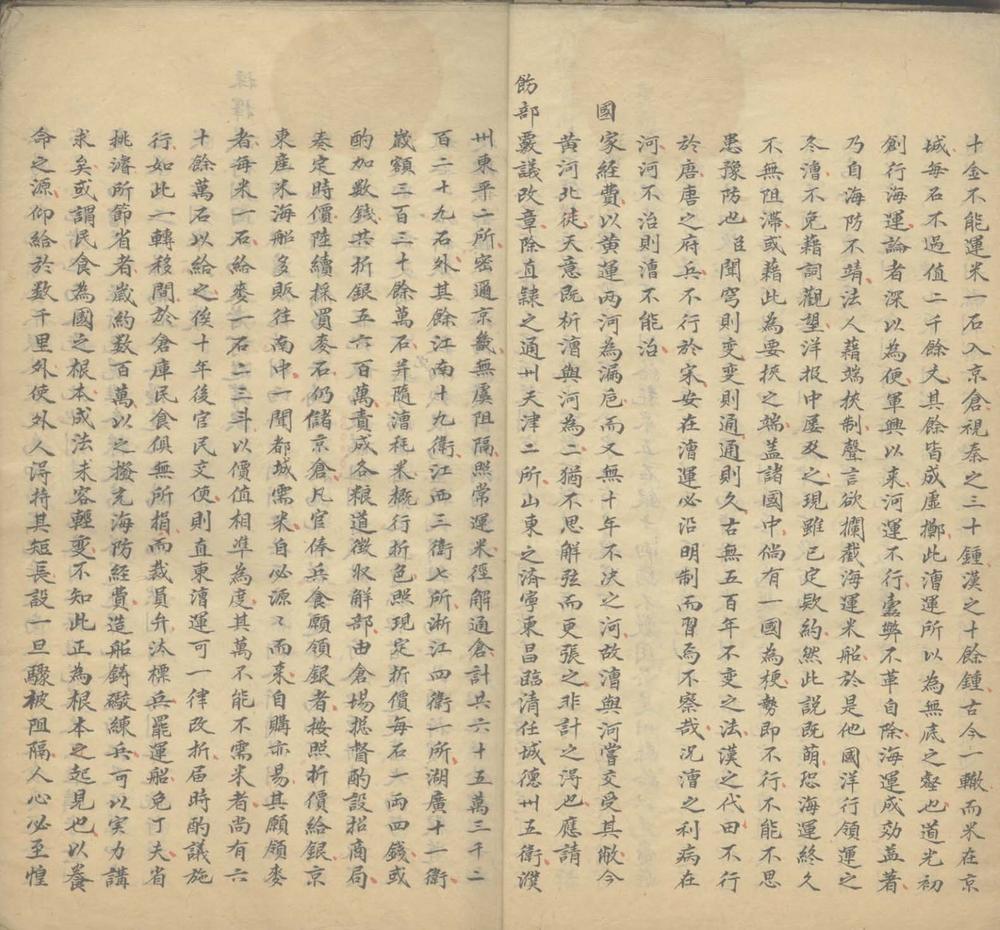 十金不能運米一石入京倉視秦之三十鍾漢之十餘鍾古今一轍而米在京
城每石不過值二千餘文其餘皆成虛擲此漕運所以為無底之壑也道光初
創行海運論者深以為便軍興以來河運不行蠹弊不革自除海運成効益著
乃自海防不靖法人藉端挾制聲言欲攔截海運米船於是他國洋行領運之
冬漕不免藉詞觀望洋报中屢及之現雖已定欵約然此説既萌恐海運終久
不無阻滯或藉此為要挾之端盖諸國中倘有一國為梗勢即不行不能不思
患豫防也臣聞窮則变变則通通則久古無五百年不变之法漢之代田不行
於唐唐之府兵不行於宋安在漕運必沿明制而習焉不察哉况漕之利病在
河河不治則漕不能治
國家經費以黄運两河為漏卮而又無十年不决之河故漕與河嘗交受其敝今
黄河北徒天意既析漕與河為二猶不思解弦而更張之非計之淂也應請
飭部覈議改章除直隸之通州天津二所山東之済寧東昌臨清任城德州五衛濮
州東平二所密通京畿無虞阻隔照常運米徑解通倉計共六十五萬三千二
百二十九石外其餘江南十九衛江西三衛七所淅江四衛一所湖廣十一衛
歳額三百三十餘萬石并隨漕耗米概行折色照現定折價每石一两四錢或
酌加数錢共折銀五六百萬責成各粮道徵収解部由倉塲摠督酌設招商局
奏定時價陸續採買麥石仍儲京倉凡官俸兵食願領銀者按照折價給銀京
東産米海船多販往南中一聞都城需米自必源々而来自購亦易其願領麥
者每米一石給麥一石二三斗以價值相準為度其萬不能不需米者尚有六
十餘萬石以給之俟十年後官民交便則直東漕運可一律改折届時酌議施
行如此一轉移間於倉庫民食俱無所損而裁員弁汰標兵罷運船免丁夫省
挑濬所節省者歳約数百萬以之撥充海防經費造船鋳礮練兵可以実力講
求矣或謂民食為國之根本成法未容輕变不知此正為根本之起見也以養
命之源仰給於数千里外使外人淂持其短長設一旦驟被阻隔人心必至惶